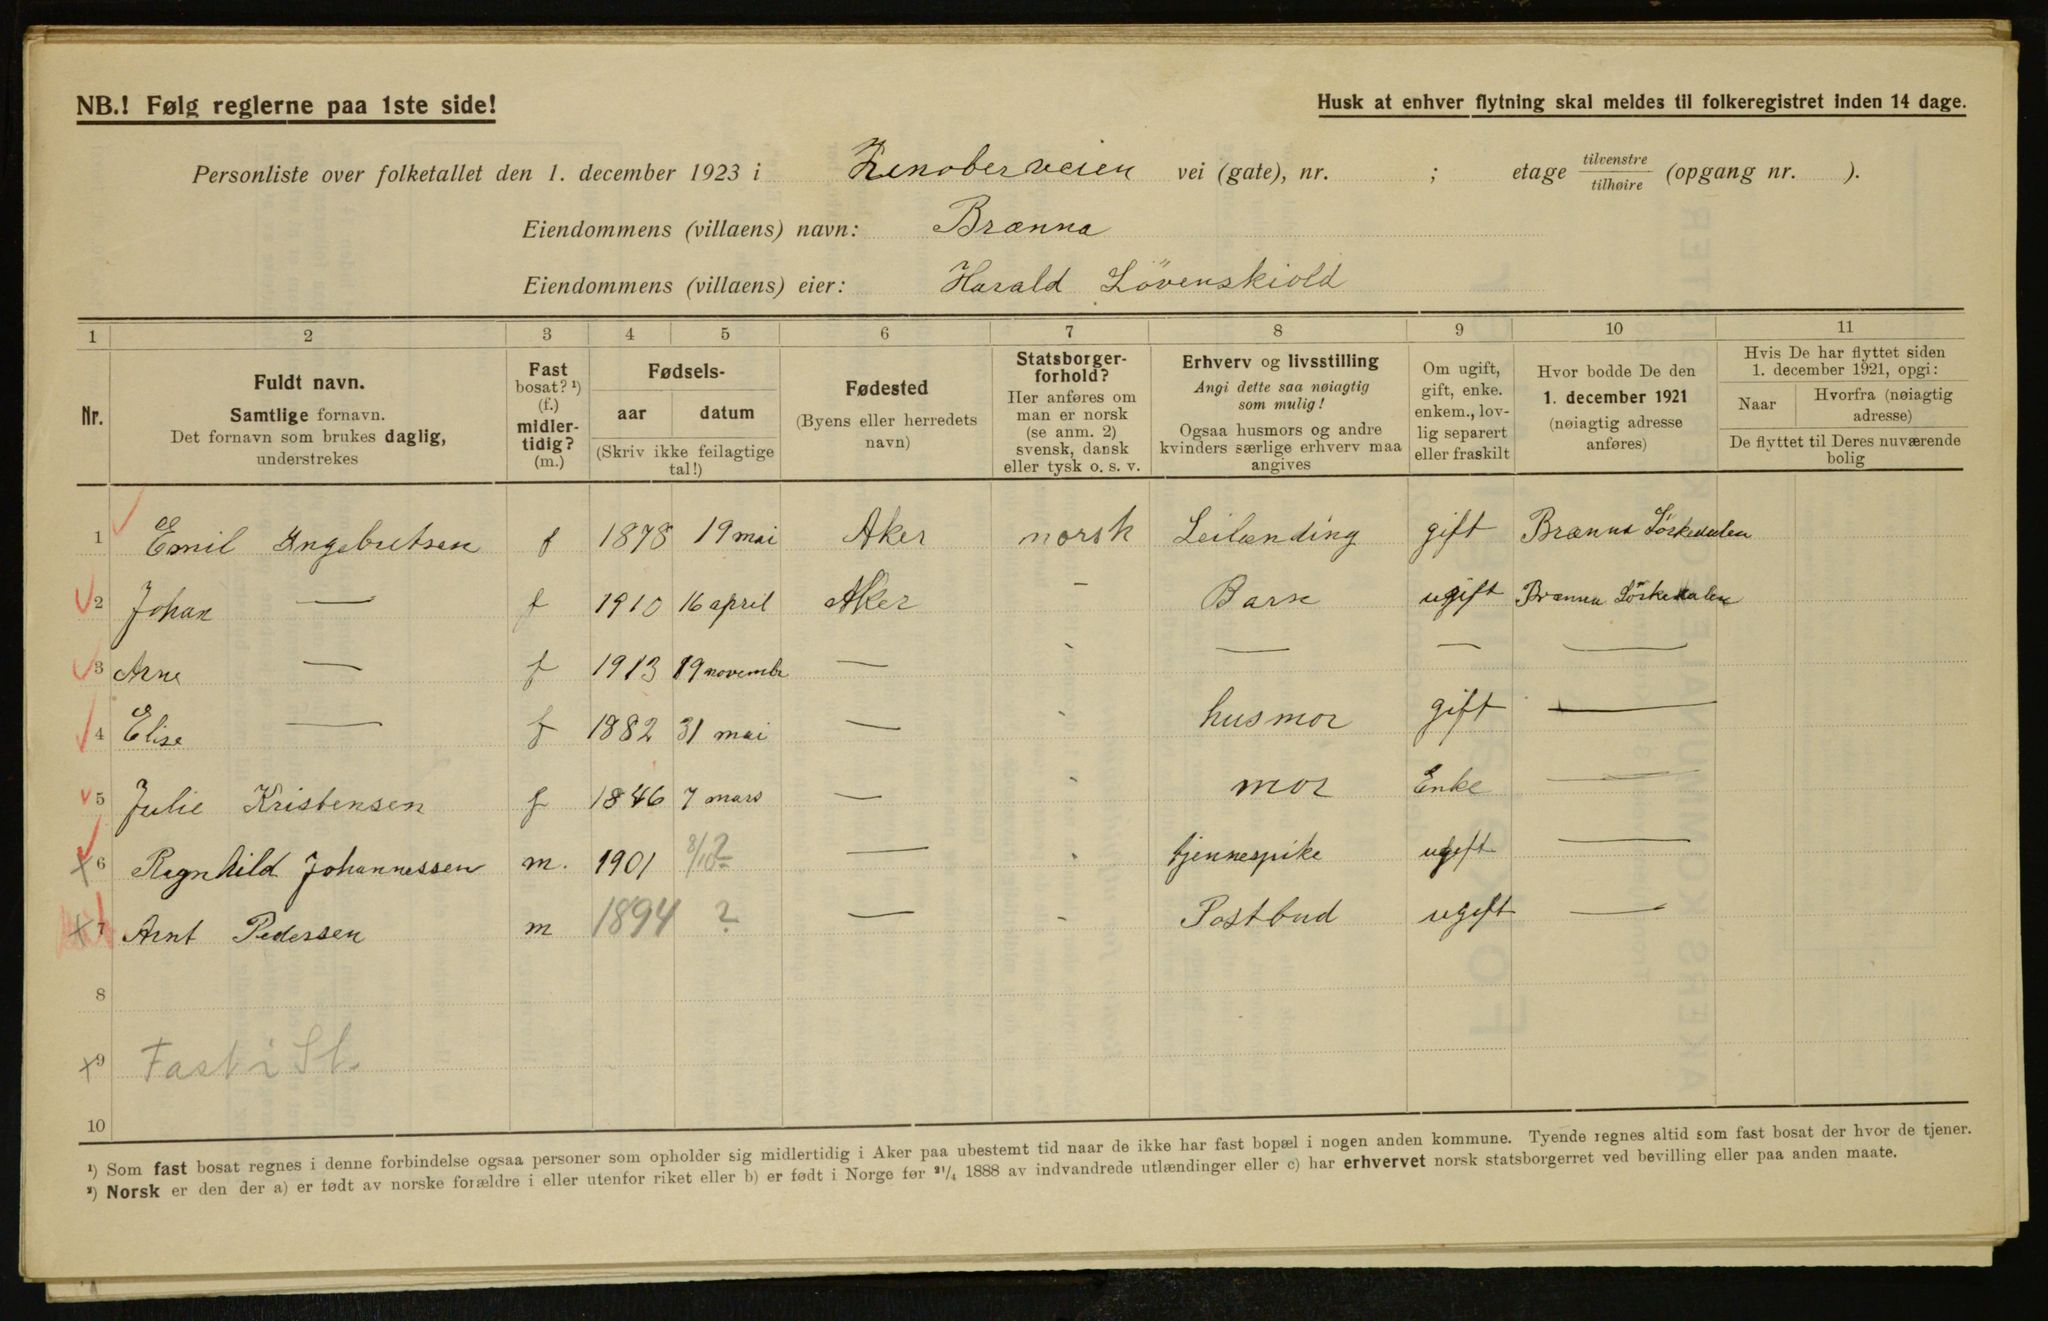 NB.! Følg reglerne paa 1ste side!
Husk at enhver flytning skal meldes til folkeregistret inden 14 dage.
Personliste over folketallet den 1. december 1923 i Zinoberveien vei (gate), nr. ; etage tilvenstre/tilhøire (opgang nr. ).
Eiendommens (villaens) navn: Brænna
Eiendommens (villaens) eier: Harald Lövenskiold
1 2 3 4 5 6 7 8 9 10 11
Nr.
Fuldt navn.
Samtlige fornavn.
Det fornavn som brukes daglig,
understrekes
Fast
bosat? ¹)
(f.)
midler-
tidig?
(m.)
Fødsels-
aar datum
(Skriv ikke feilagtige
tal!)
Fødested
(Byens eller herredets
navn)
Statsborger-
forhold?
Her anføres om
man er norsk
(se anm. 2)
svensk, dansk
eller tysk o. s. v.
Erhverv og livsstilling
Angi dette saa nøiagtig
som mulig!
Ogsaa husmors og andre
kvinders særlige erhverv maa
angives
Om ugift,
gift, enke.
enkem., lov-
lig separert
eller fraskilt
Hvor bodde De den
1. december 1921
(nøiagtig adresse
anføres)
Hvis De har flyttet siden
1. december 1921, opgi:
Naar
Hvorfra (nøiagtig
adresse)
De flyttet til Deres nuværende
bolig
1 Emil Ingebretsen f 1878 19 mai Aker norsk Leilænding gift Brænna Sörkedalen
2 Johan — f 1910 16 april Aker - Barn ugift Brænna Sörkedalen
3 Arne — f 1913 19 novembr — - — — —
4 Elise — f 1882 31 mai — - husmor gift —
5 Julie Kristensen f 1846 7 mars — - mor Enke —
x 6 Ragnhild Johannessen m. 1901 8/10? — - tjennespike ugift —
x 7 Arnt Pedersen m 1894 ? — - Postbud ugift —
8
x 9 Fast i St.
10
¹) Som fast bosat regnes i denne forbindelse ogsaa personer som opholder sig midlertidig i Aker paa ubestemt tid naar de ikke har fast bopæl i nogen anden kommune. Tyende regnes altid som fast bosat der hvor de tjener.
²) Norsk er den der a) er født av norske forældre i eller utenfor riket eller b) er født i Norge før ²¹/₄ 1888 av indvandrede utlændinger eller c) har erhvervet norsk statsborgerret ved bevilling eller paa anden maate.